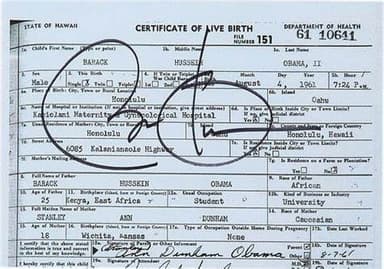 STATE OF HAWAII CERTIFICATE OF LIVE BIRTH DEPARTMENT OF HEALTH
FILE NUMBER 151 61 10641
1a. Child's First Name (Type or print) 1b. Middle Name 1c. Last Name
BARACK HUSSEIN OBAMA, II
2. Sex 3. This Birth 4. If Twin or Triplet, Month Day Year Hour
Male Single Twin Triplet August 4, 1961 7:24 P.M.
6a. Place of Birth: City, Town or Rural Location 6b. Island
Honolulu Oahu
6c. Name of Hospital or Institution (If not in hospital or institution, give street address) 6d. Is Place of Birth Inside City or Town Limits?
Kapiolani Maternity & Gynecological Hospital Yes No
7a. Usual Residence of Mother: City, Town or Rural Location 7b. Island 7c. County and State or Foreign Country
Honolulu Oahu Honolulu, Hawaii
7d. Street Address 7e. Is Residence Inside City or Town Limits?
6085 Kalanianaole Highway Yes No
7f. Mother's Mailing Address 7g. Is Residence on a Farm or Plantation?
Yes No
8. Full Name of Father 9. Race of Father
BARACK HUSSEIN OBAMA African
10. Age of Father 11. Birthplace (Island, State or Foreign Country) 12a. Usual Occupation 12b. Kind of Business or Industry
25 Kenya, East Africa Student University
13. Full Maiden Name of Mother 14. Race of Mother
STANLEY ANN DUNHAM Caucasian
15. Age of Mother 16. Birthplace (Island, State or Foreign Country) 17a. Type of Occupation Outside Home During Pregnancy
18 Wichita, Kansas None
I certify that the above stated information is true and correct to the best of my knowledge. 18a. Signature of Parent or Other Informant Parent Other
Ann Dunham Obama 8-7-61
I hereby certify that this child